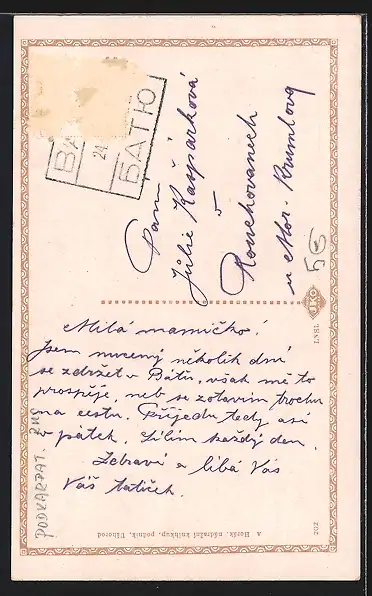 BA
24
БАТЮ
Paní
Júlie Kašpárková
v
u Mor. Brumova
5€
JKO
LNSL
Milá mamičko!
Jsem nucený několik dní
se zdržet v Bátu, však mě to
prospěje, neb se zotavím trochu
na cestu. Přijedu tedy asi
v pátek. Sílím každý den.
Zdraví a líbá Vás
Váš tatíček.
PODKARPAT.
A Horák, nádražní knihkup. podnik, Užhorod
202